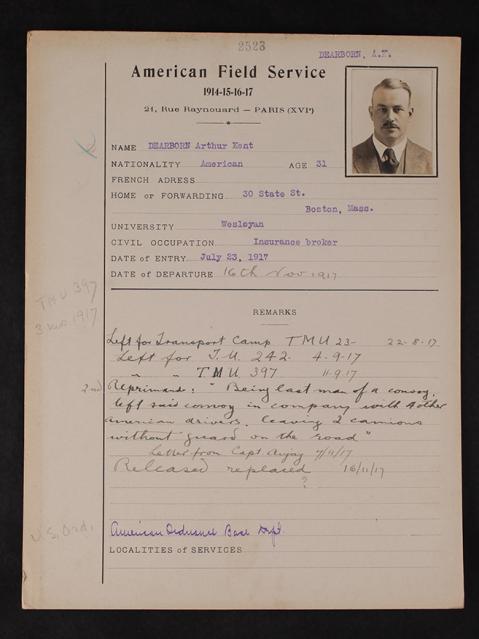 2523
DEARBORN, A.K.
American Field Service
1914-15-16-17
21, Rue Raynouard — PARIS (XVIe)
NAME DEARBORN Arthur Kent
NATIONALITY American AGE 31
FRENCH ADRESS
HOME or FORWARDING 30 State St.
Boston, Mass.
UNIVERSITY Wesleyan
CIVIL OCCUPATION Insurance broker
DATE of ENTRY July 23, 1917
DATE of DEPARTURE 16th Nov 1917
TMU 397
3 mo 1917
REMARKS
Left for Transport Camp TMU 23- 22-8-17
Left for T.U. 242- 4-9-17
" " TMU 397 11-9-17
2nd Reprimand: "Being last man of a convoy,
left said convoy in company with 4 other
American drivers, leaving 2 camions
without guard on the road"
Letter from Capt 7/11/17
Released replaced 16/11/17
?
U.S. Ord.
American Ordnance Base Dept.
LOCALITIES of SERVICES